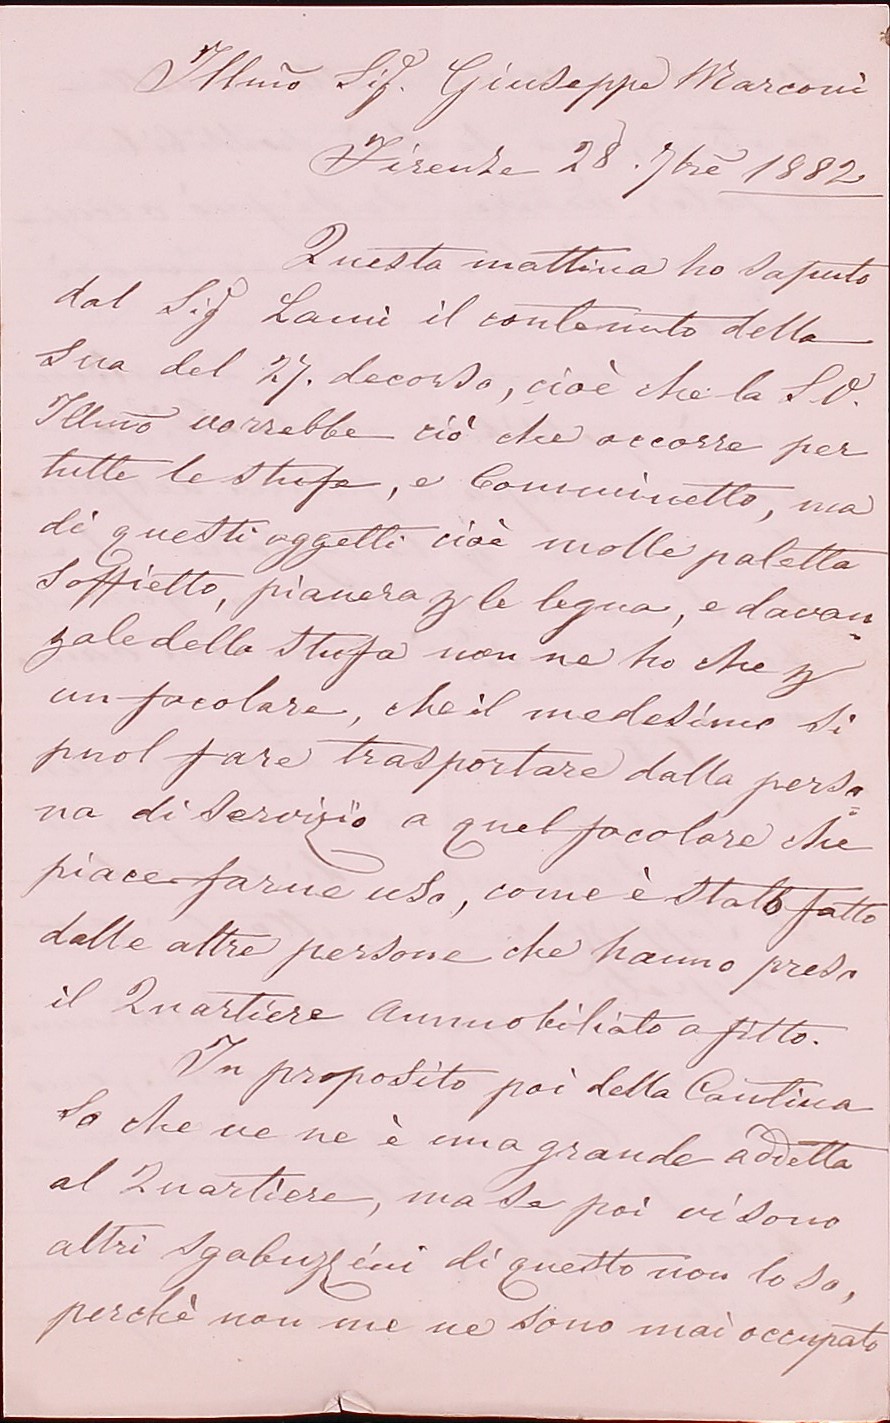 Illmo Sig. Giuseppe Marconi
Firenze 28. 7bre 1882
Questa mattina ho saputo
dal Sig Lami il contenuto della
Sua del 27. decorso, cioè che la S.V.
Illma vorrebbe ciò che occorre per
tutte le Stufe, e Camminetto, ma
di questi oggetti cioè molle paletta
Soffietto, pianera p le legna, e davan
zale della Stufa non ne ho che p
un focolare, che il medesimo si
puol fare trasportare dalla perso
na di Servizio a quel focolare che
piace farne uso, come è Stato fatto
dalle altre persone che hanno preso
il Quartiere Ammobiliato a fitto.
In proposito poi della Cantina
So che ve ne è una grande addetta
al Quartiere, ma se poi vi sono
altri sgabuzzini di questo non lo so,
perchè non me ne sono mai occupato